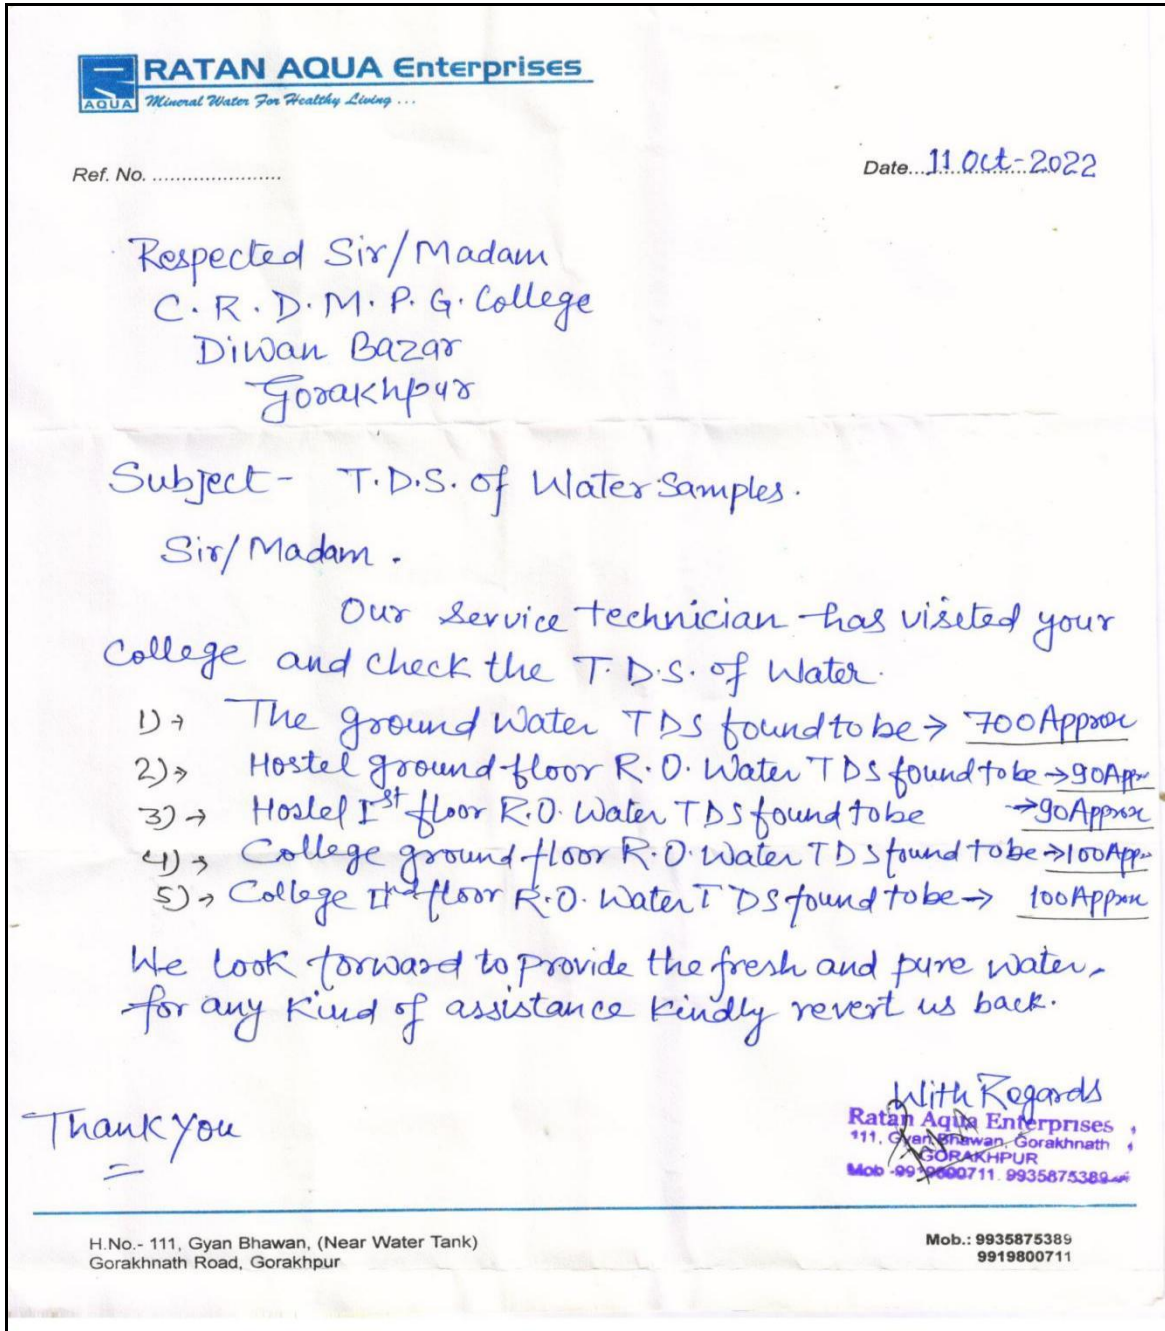 RATAN AQUA Enterprises
AQUA
Mineral Water For Healthy Living ...
Ref. No. ........................
Date...11 Oct-2022
Respected Sir/Madam
C.R.D.M.P.G. College
Diwan Bazar
Gorakhpur
Subject- T.D.S. of Water Samples.
Sir/Madam.
Our service technician has visited your
College and check the T.D.S. of Water.
1)→ The ground Water TDS found to be → 700 Approx
2)→ Hostel ground floor R.O. Water TDS found to be → 90 Appr
3)→ Hostel Ist floor R.O. Water TDS found to be → 90 Approx
4)→ College ground floor R.O Water TDS found to be → 100 App
5)→ College IInd floor R.O. Water TDS found to be → 100 Approx
We look forward to provide the fresh and pure water,
for any kind of assistance kindly revert us back.
With Regards
Thank You
Ratan Aqua Enterprises
111, Gyan Bhawan, Gorakhnath
GORAKHPUR
Mob 9935875389
H.No.- 111, Gyan Bhawan, (Near Water Tank)
Gorakhnath Road, Gorakhpur
Mob.: 9935875389
9919800711